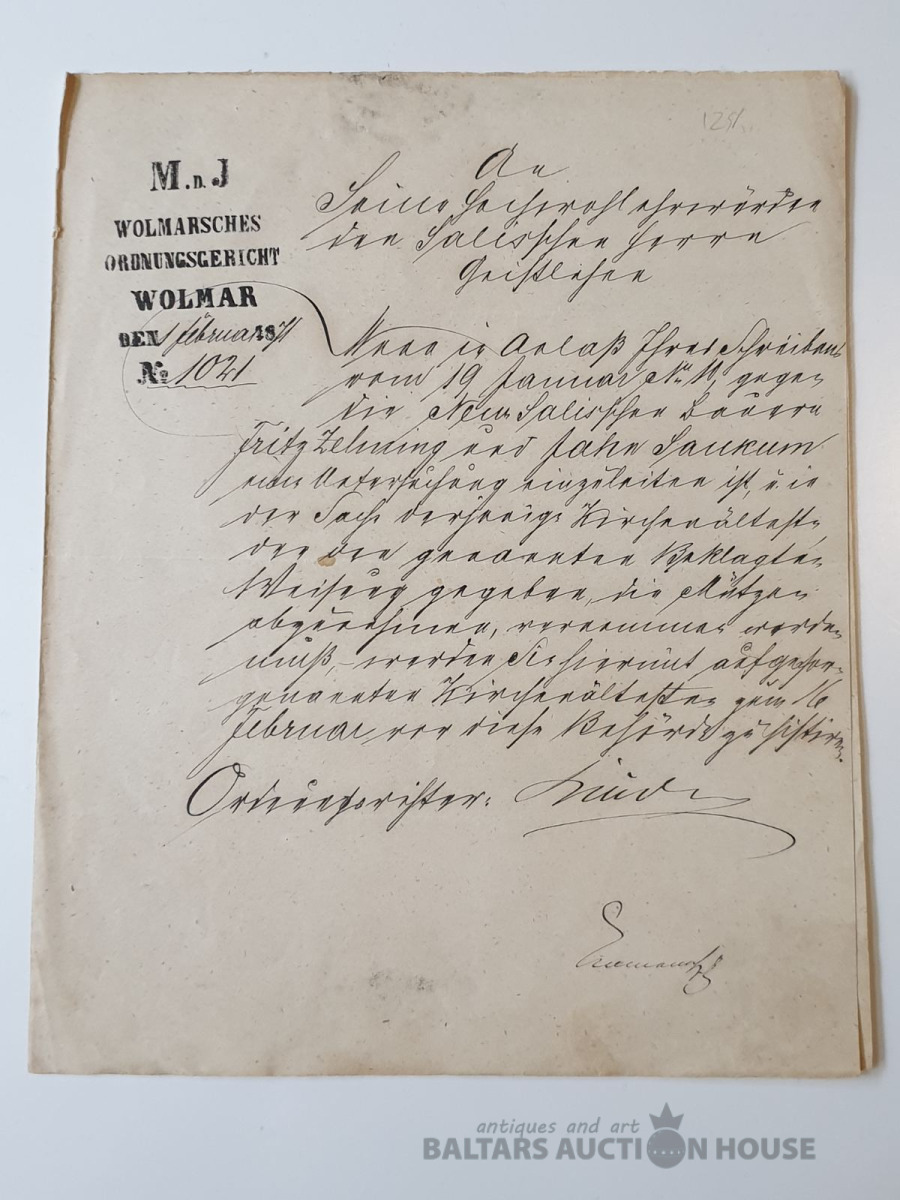 125/.
M. D. J
WOLMARSCHES
ORDNUNGSGERICHT
WOLMAR
DEN 1 Februar 1871
No 1021
An
Seine Hochwohlehrwürden
den Salisschen Herrn
Geistlichen
Wenn in Anlaß Ihres Schreibens
vom 19 Januar No 11, gegen
die Neu Salisschen Bauern
Fritz und Jahn
eine Untersuchung einzuleiten ist, u. in
der Sache derjenige Kirchenälteste
der den genannten Beklagten
Weisung gegeben, die Mützen
abzunehmen, vernommen werden
muß, – werden Sie hiermit aufgefor-
genannten Kirchenältesten zum 16
Februar vor diese Behörde zu sistiren.
Ordnungsrichter:
antiques and art
BALTARS AUCTION HOUSE